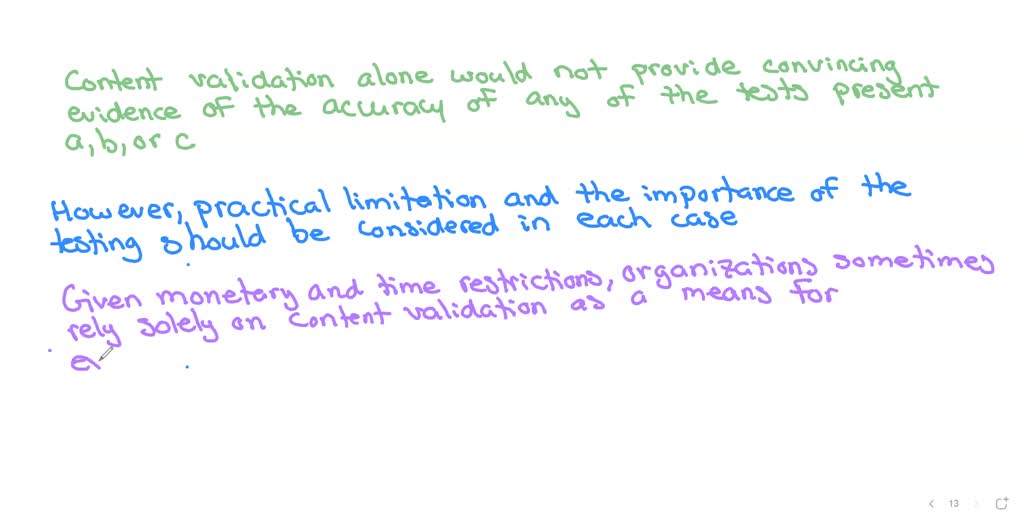 Content validation alone would not provide convincing
evidence of the accuracy of any of the tests present
a, b, or c
However, practical limitation and the importance of the
testing should be considered in each case
Given monetary and time restrictions, organizations sometimes
rely solely on content validation as a means for
e
13